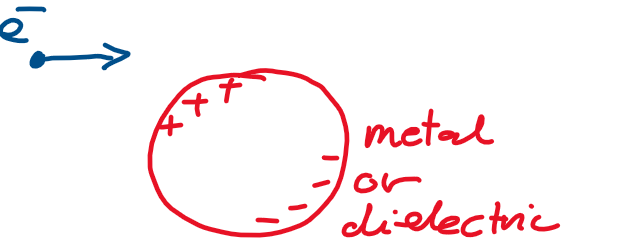 e⁻
+ + +
metal
or
dielectric
− − − −